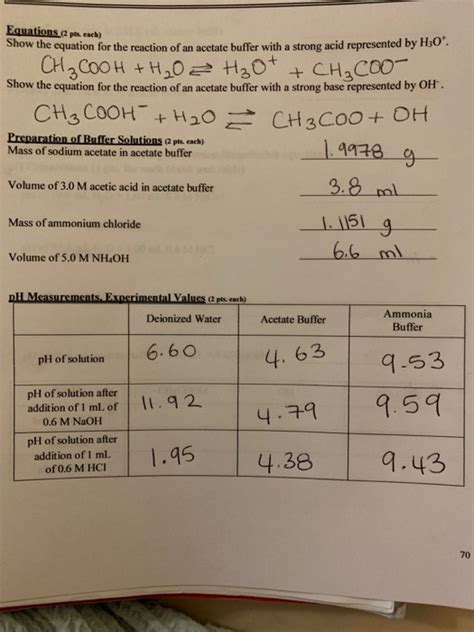 Equations (2 pts. each)
Show the equation for the reaction of an acetate buffer with a strong acid represented by H₃O⁺.
CH₃COOH + H₂O ⇌ H₃O⁺ + CH₃COO⁻
Show the equation for the reaction of an acetate buffer with a strong base represented by OH⁻.
CH₃COOH⁻ + H₂O ⇌ CH₃COO + OH
Preparation of Buffer Solutions (2 pts. each)
Mass of sodium acetate in acetate buffer 1.9978 g
Volume of 3.0 M acetic acid in acetate buffer 3.8 ml
Mass of ammonium chloride 1.1151 g
Volume of 5.0 M NH₄OH 6.6 ml
pH Measurements, Experimental Values (2 pts. each)
Deionized Water Acetate Buffer Ammonia Buffer
pH of solution 6.60 4.63 9.53
pH of solution after addition of 1 mL of 0.6 M NaOH 11.92 4.79 9.59
pH of solution after addition of 1 mL of 0.6 M HCl 1.95 4.38 9.43
70